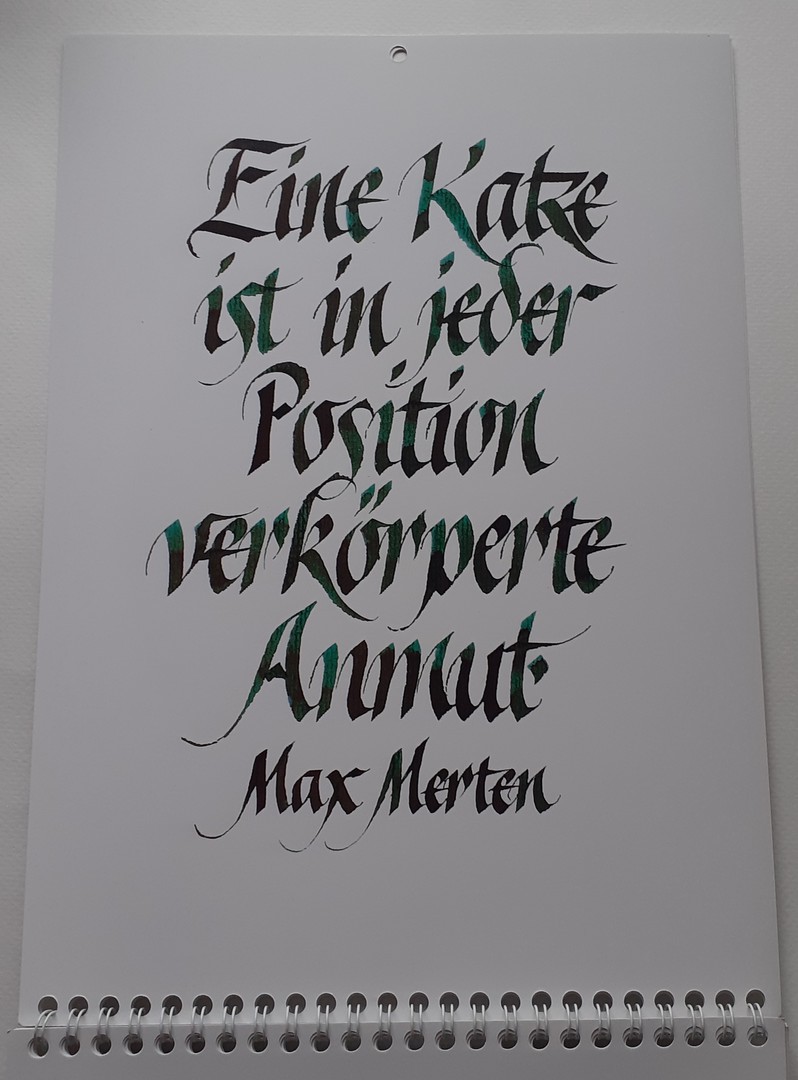 Eine Katze
ist in jeder
Position
verkörperte
Anmut.
Max Merten